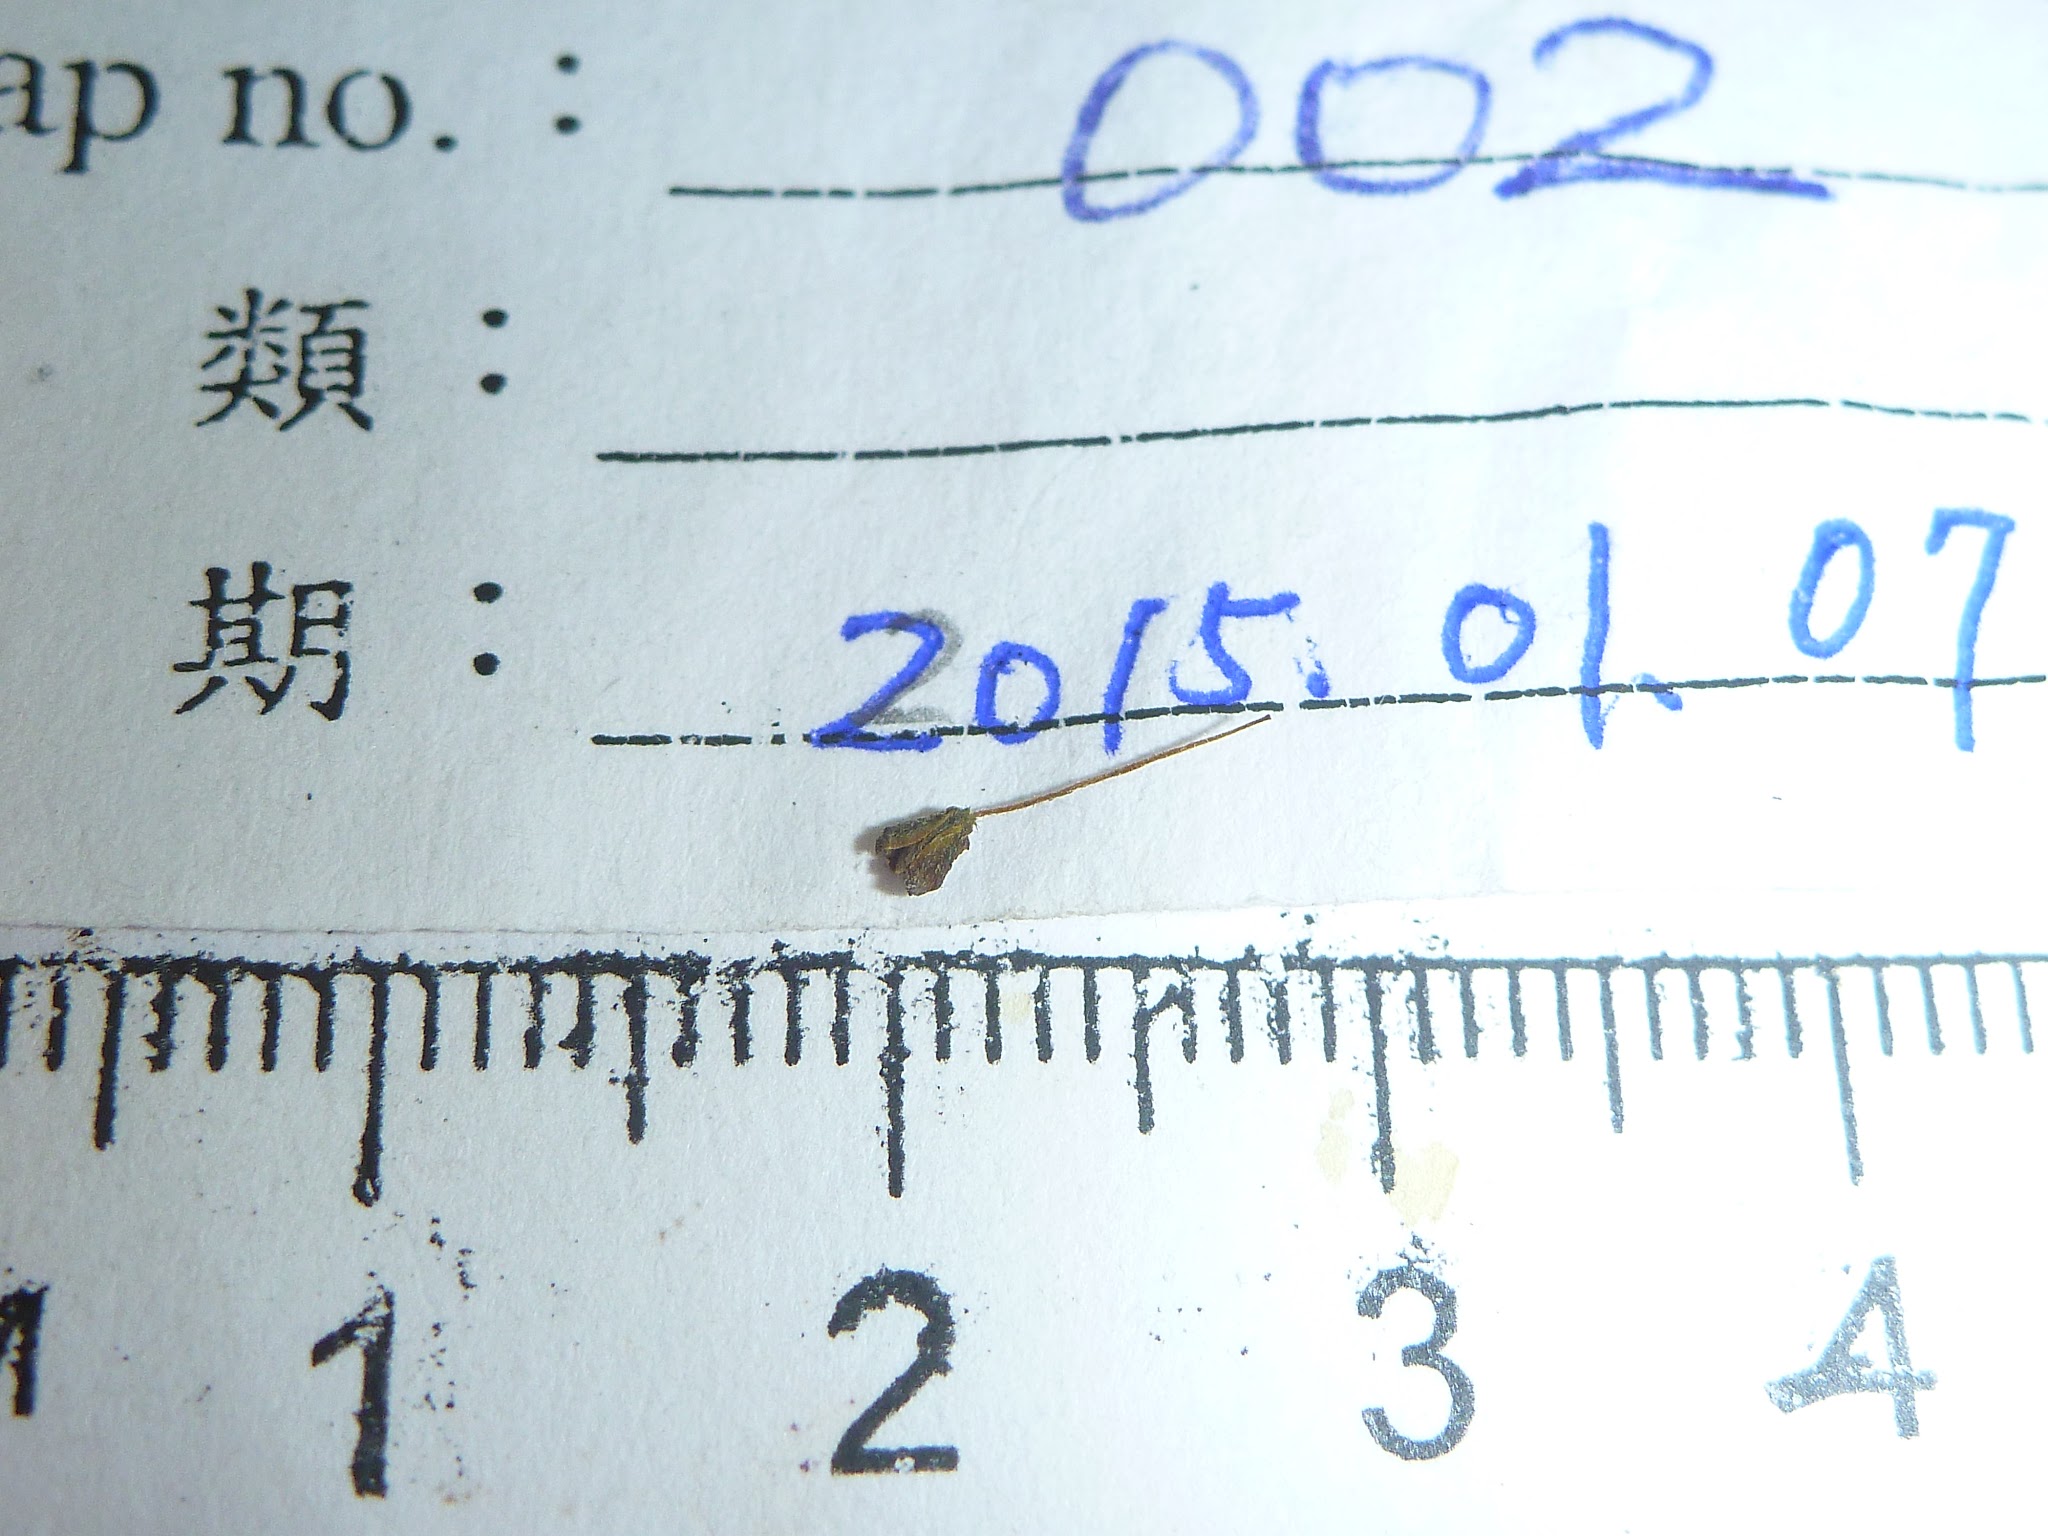 ap no. : 002
類 :
期 : 2015. 01. 07
1 2 3 4